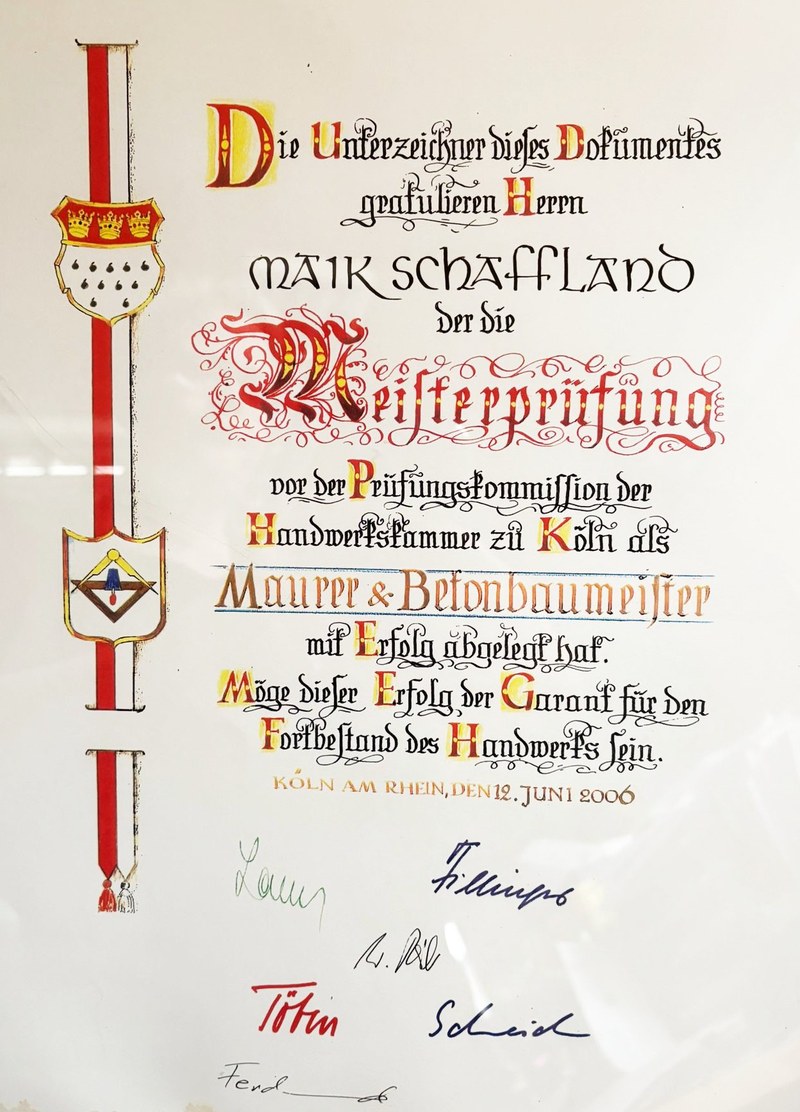 Die Unterzeichner dieses Dokumentes
gratulieren Herrn
MAIK SCHAFFLAND
der die
Meisterprüfung
vor der Prüfungskommission der
Handwerkskammer zu Köln als
Maurer & Betonbaumeister
mit Erfolg abgelegt hat.
Möge dieser Erfolg der Garant für den
Fortbestand des Handwerks sein.
KÖLN AM RHEIN, DEN 12. JUNI 2006
Töbin